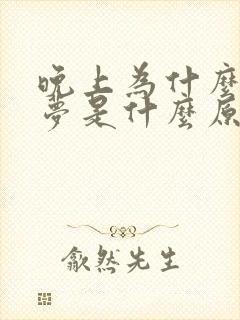 晚上為什麼
夢是什麼原
歙然先生